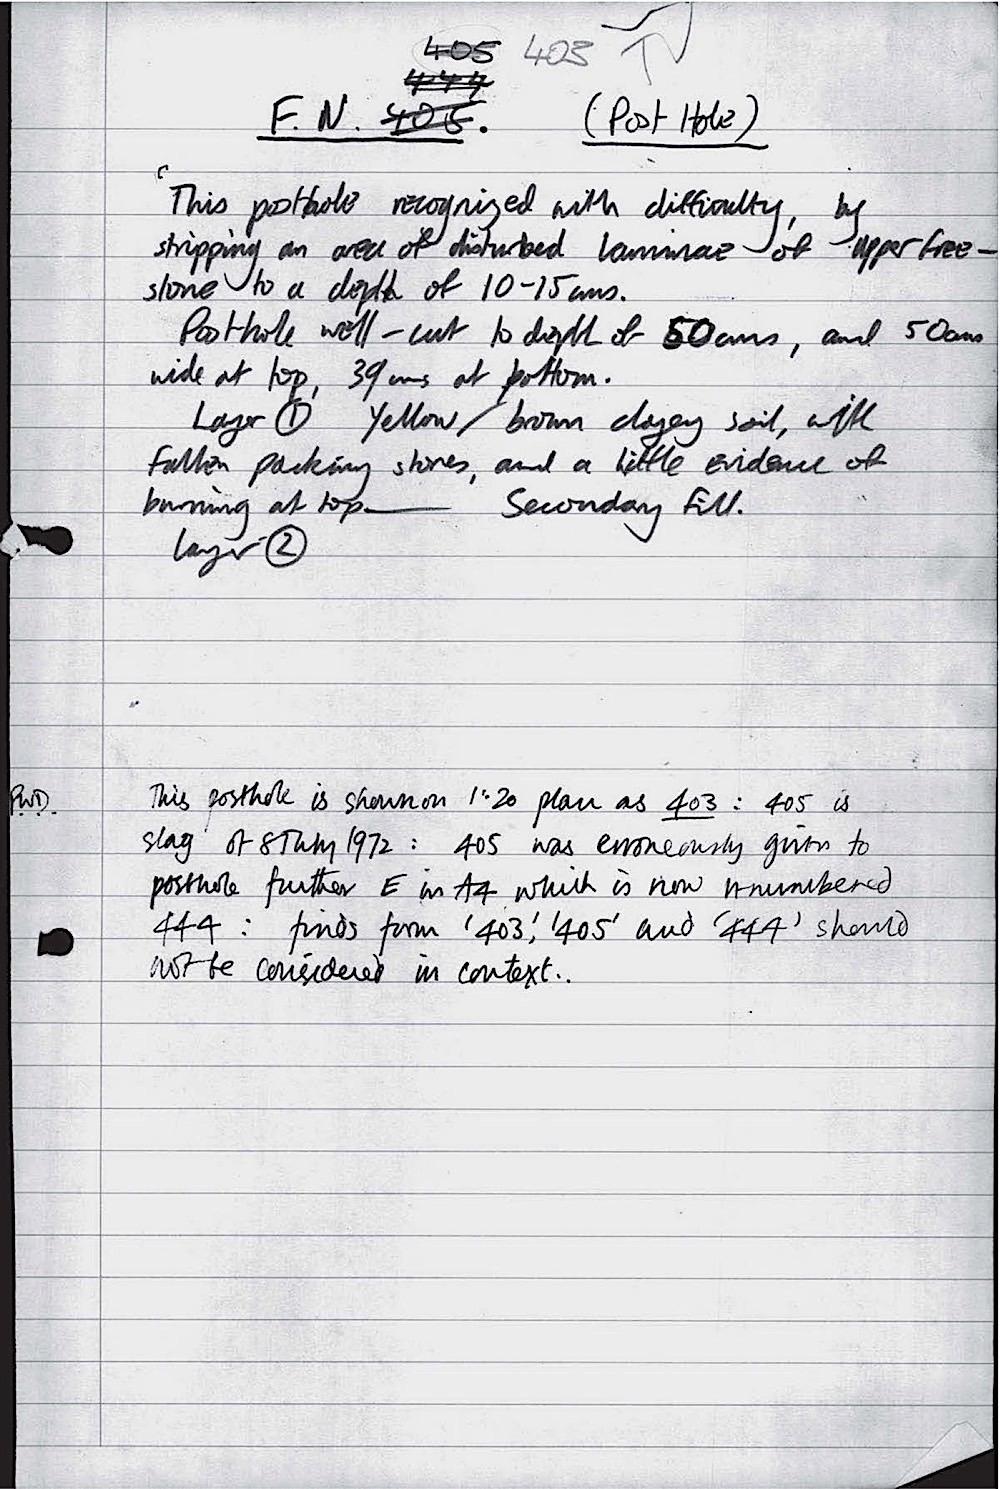 405 403
444
F.N. 405. (Post Hole)
This posthole recognized with difficulty, by
stripping an area of disturbed laminae of upper free-
stone to a depth of 10-15cms.
Posthole well-cut to depth of 50cms, and 50cms
wide at top, 39cms at bottom.
Layer ① Yellow/brown clayey soil, with
fallen packing stones, and a little evidence of
burning at top.—— Secondary Fill.
Layer ②
P.W.D. This posthole is shown on 1:20 plan as 403 : 405 is
slag of 8 July 1972 : 405 was erroneously given to
posthole further E in A4 which is now renumbered
444 : finds form '403', '405' and '444' should
not be considered in context..